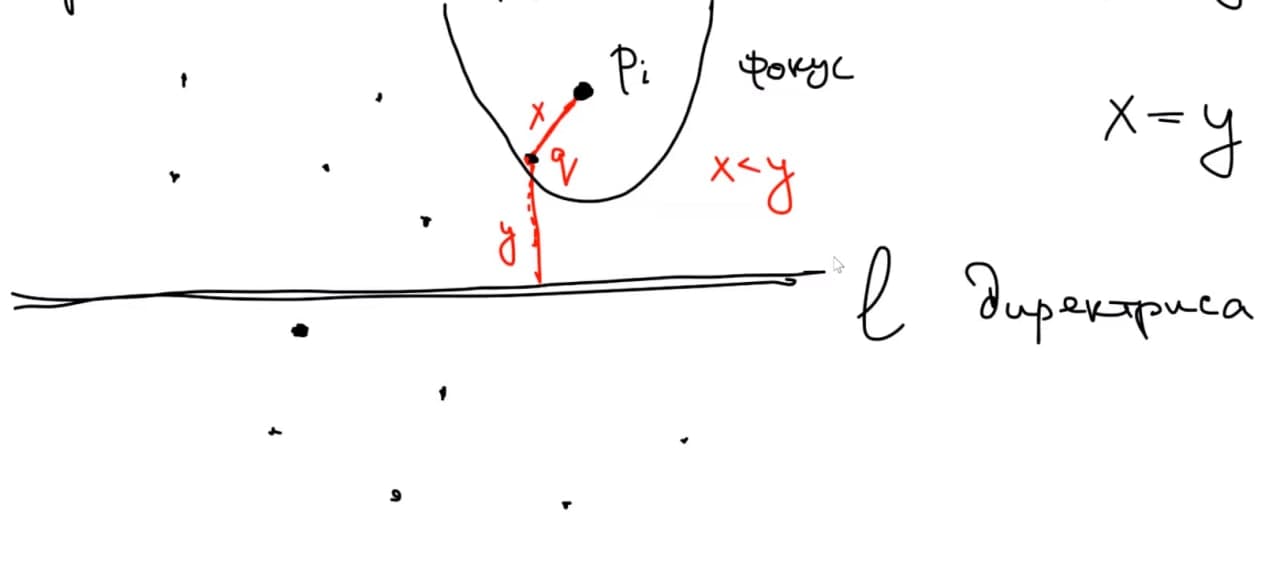 Pi фокус
x
x = y
q
x < y
y
l директриса